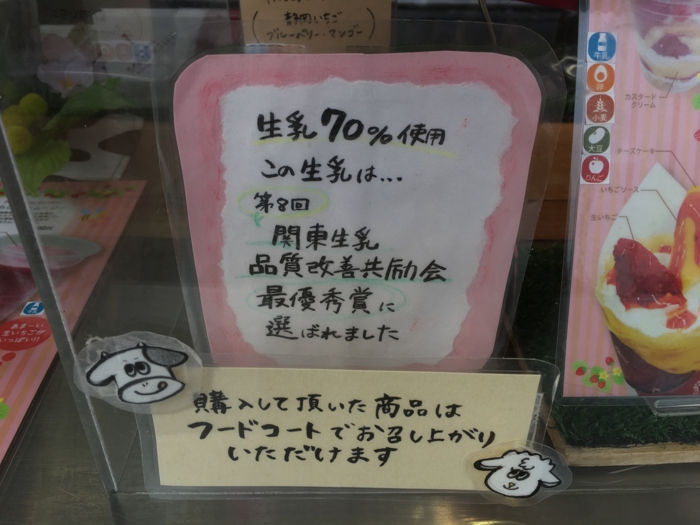 静岡いちご
ブルーベリー・マンゴー
生乳70%使用
この生乳は...
第8回
関東生乳
品質改善共励会
最優秀賞に
選ばれました
購入して頂いた商品は
フードコートでお召し上がり
いただけます
牛乳
卵
小麦
大豆
りんご
カスタード
クリーム
チーズケーキ
いちごソース
生いちご
あまーい
生いちごが
いっぱい!!